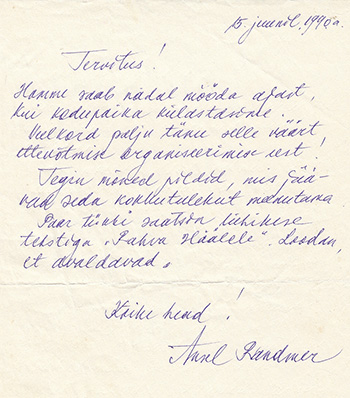 15. juunil, 1990.a.
Tervitus!
Homme saab nädal mööda ajast,
kui kodupaika külastasime.
Veelkord palju tänu selle väärt
ettevõtmise organiseerimise eest!
Tegin mõned pildid, mis jää-
vad seda kokkutulekut meenutama.
Paar tükki saatsin lühikese
tekstiga „Rahva Häälele". Loodan,
et avaldavad.
Kõike head!
Randmer